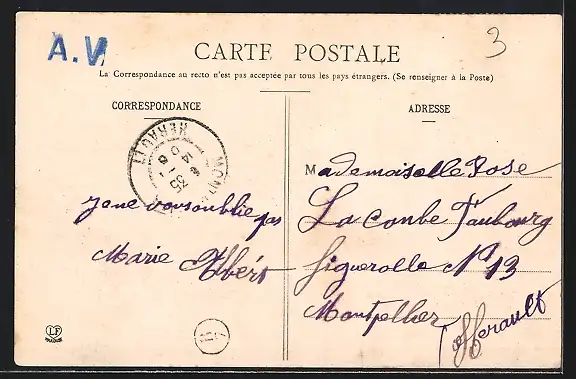 A.V
3
CARTE POSTALE
La Correspondance au recto n'est pas acceptée par tous les pays étrangers. (Se renseigner à la Poste)
CORRESPONDANCE
ADRESSE
HERAULT
Jene vousoublie pas
Marie Albért
Mademaiselle Rose
La combe Faubourg
figuerolle N° 13
Montpellier
Herault
LF